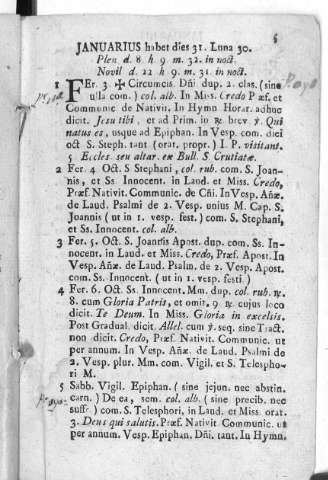 6
JANUARIUS habet dies 31. Luna 30.
Plen d. 8 h 9 m. 32. in noct.
Novil d. 22 h 9 m. 31. in noct.
1 FEr. 3. ✠ Circumcis. Dñi dup. 2. clas. (sine
ulla com.) col. alb. In Miss. Credo Præf. et
Communic de Nativit. In Hymn Horar. adhuc
dicit. Jesu tibi, et ad Prim. in ℟ brev. ℣. Qui
natus es, usque ad Epiphan. In Vesp. com. diei
oct S. Steph. tant (orat. propr.) I. P. visitant.
5 Eccles seu altar. ex Bull. S. Crutiatæ.
2 Fer. 4 Oct. S Stephani, col. rub. com. S. Joan-
nis, et Ss Innocent. in Laud. et Miss. Credo,
Præf. Nativit Communic. de Cñi. In Vesp. Añæ.
de Laud. Psalmi de 2. Vesp. unius M. Cap. S.
Joannis (ut in 1. vesp. fest.) com. S. Stephani,
et Ss. Innocent. col. alb.
3 Fer. 5. Oct. S. Joannis Apost. dup. com. Ss. In-
nocent. in Laud. et Miss. Credo, Præf. Apost. In
Vesp. Añæ de Laud. Psalm. de 2. Vesp. Apost.
com. Ss. Innocent. (ut in 1. vesp. fest.)
4 Fer. 6. Oct. Ss. Innocent. Mm. dup. col. rub. ℟.
8. cum Gloria Patris, et omit. 9 ℟ cujus loco
dicit. Te Deum. In Miss. Gloria in excelsis.
Post Gradual. dicit. Allel. cum ℣. seq. sine Tract.
non dicit. Credo, Præf. Nativit. Communic. ut
per annum. In Vesp. Añæ. de Laud. Psalmi de
2. Vesp. plur. Mm. com. Vigil. et S. Telespho-
ri M.
5 Sabb. Vigil. Epiphan. (sine jejun. nec abstin.
carn.) De ea, sem. col. alb. (sine precib. nec
suffr.) com. S. Telesphori, in Laud. et Miss. orat.
3. Deus qui salutis. Præf. Nativit. Communic. ut
per annum. Vesp. Epiphan. Dñi. tant. In Hymn.